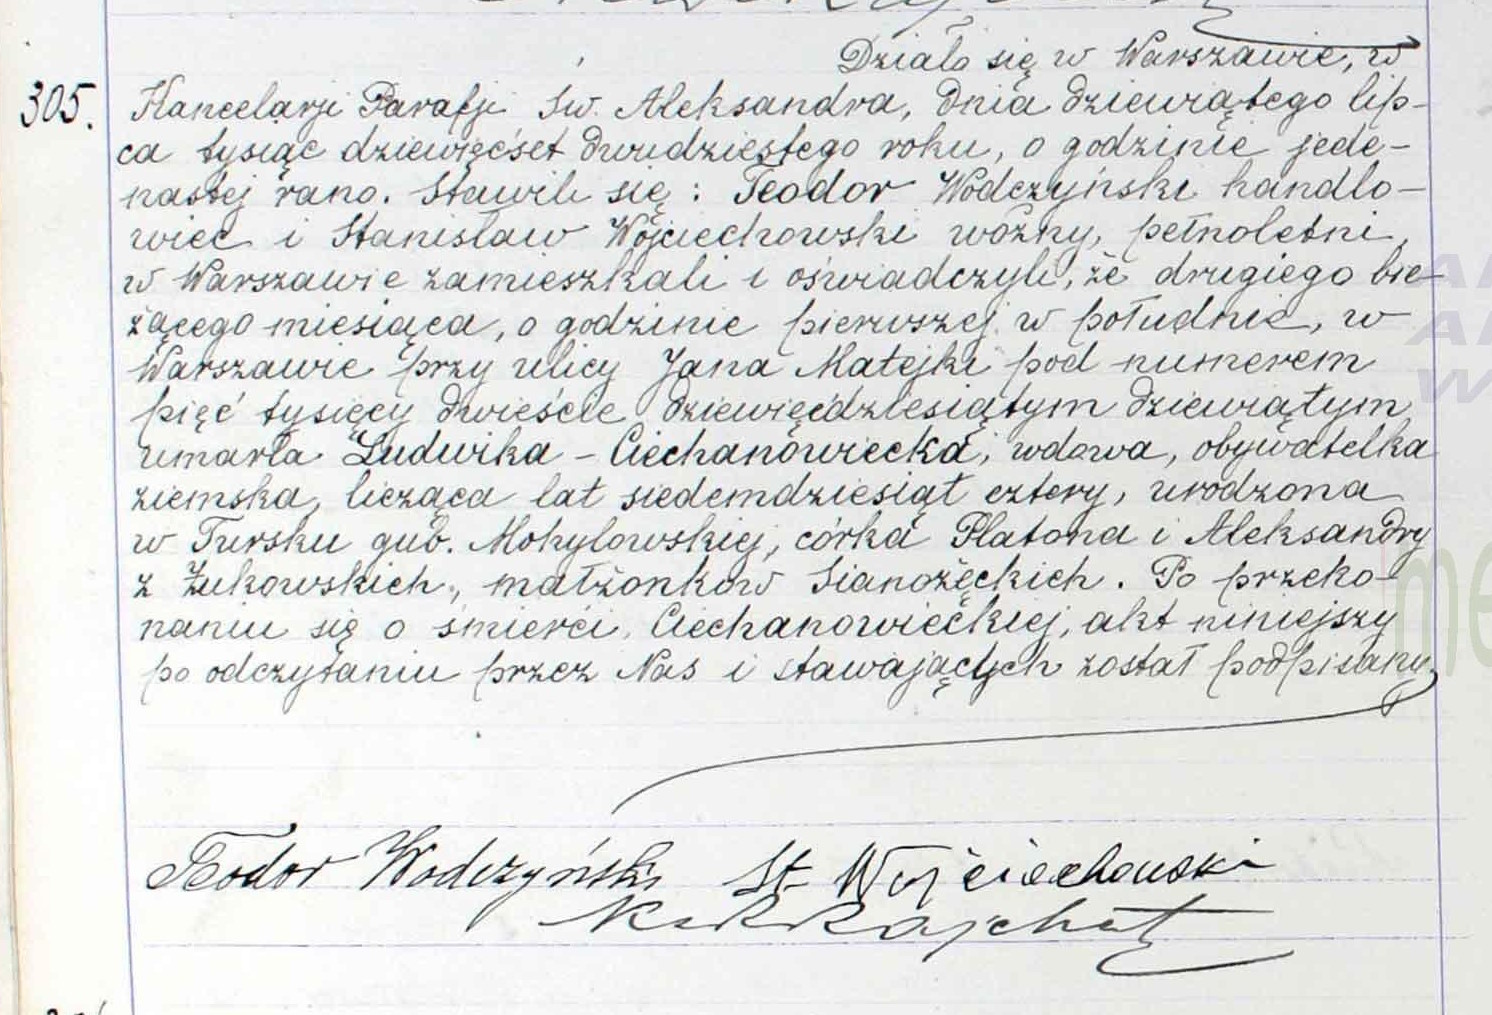 Działo się w Warszawie, w
305. Kancelarji Parafji św. Aleksandra, dnia dziewiątego lip-
ca tysiąc dziewięćset dwudziestego roku, o godzinie jede-
nastej rano. Stawili się: Teodor Wodczyński handlo-
wiec i Stanisław Wojciechowski woźny, pełnoletni,
w Warszawie zamieszkali i oświadczyli, że drugiego bie-
żącego miesiąca, o godzinie pierwszej w południe, w
Warszawie przy ulicy Jana Matejki pod numerem
pięć tysięcy dwieście dziewięćdziesiątym dziewiątym
umarła Ludwika - Ciechanowiecka, wdowa, obywatelka
ziemska, licząca lat siedemdziesiąt cztery, urodzona
w Tursku gub. Mohylowskiej, córka Platona i Aleksandry
z Żukowskich, małżonków Sianożęckich. Po przeko-
naniu się o śmierci Ciechanowieckiej, akt niniejszy
po odczytaniu przez Nas i stawających został podpisany.
Teodor Wodczyński St. Wojciechowski